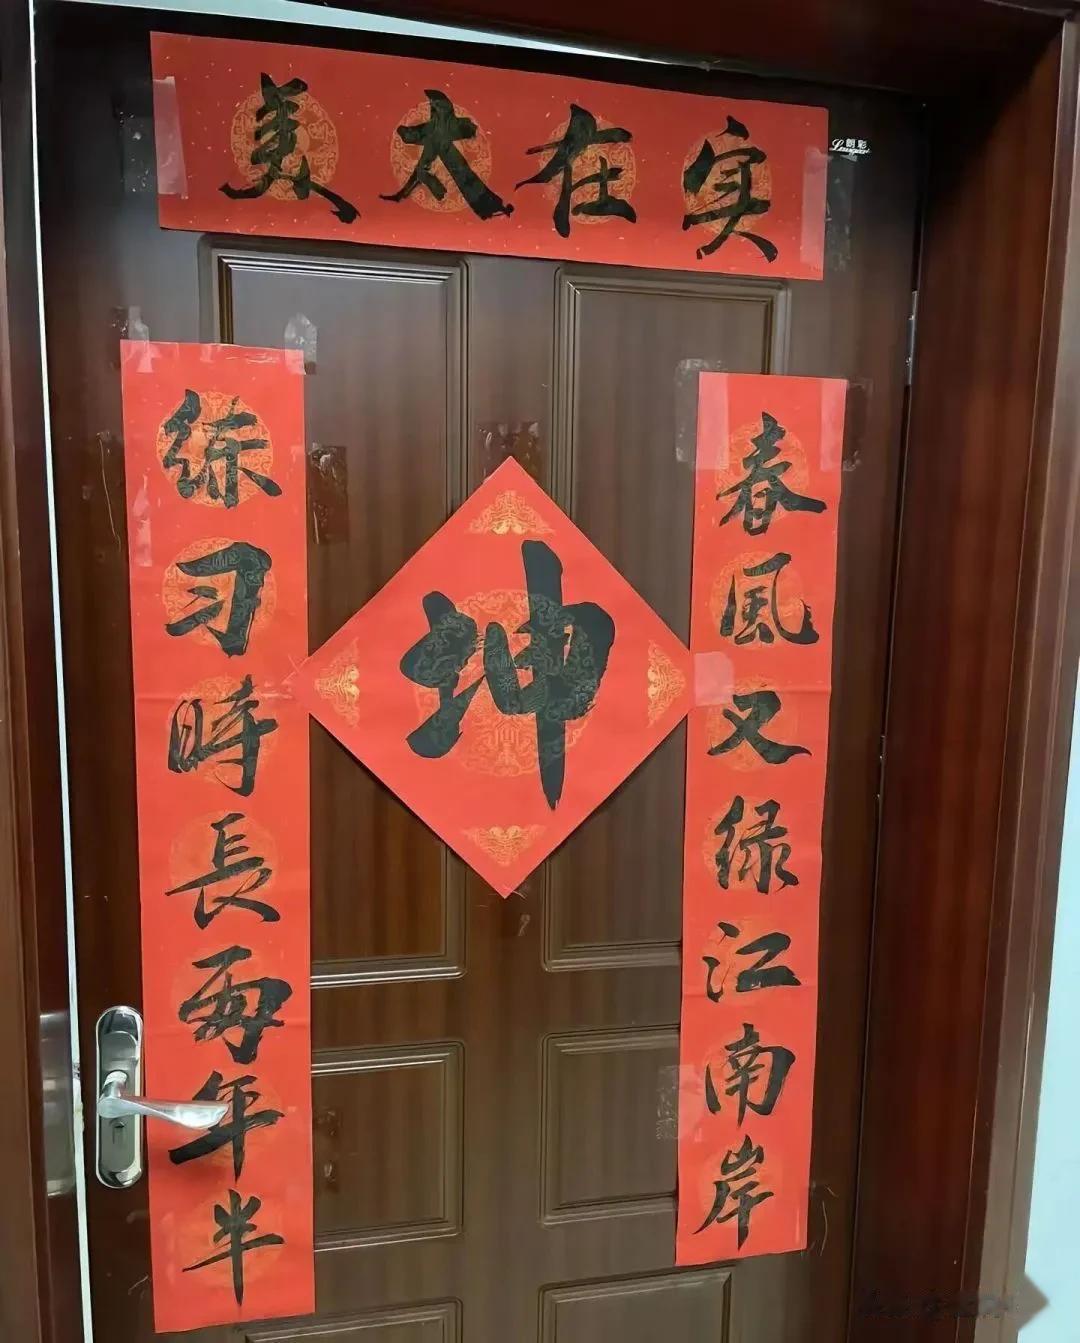 实在太美
春風又绿江南岸
练习時長两年半
坤
朗彩